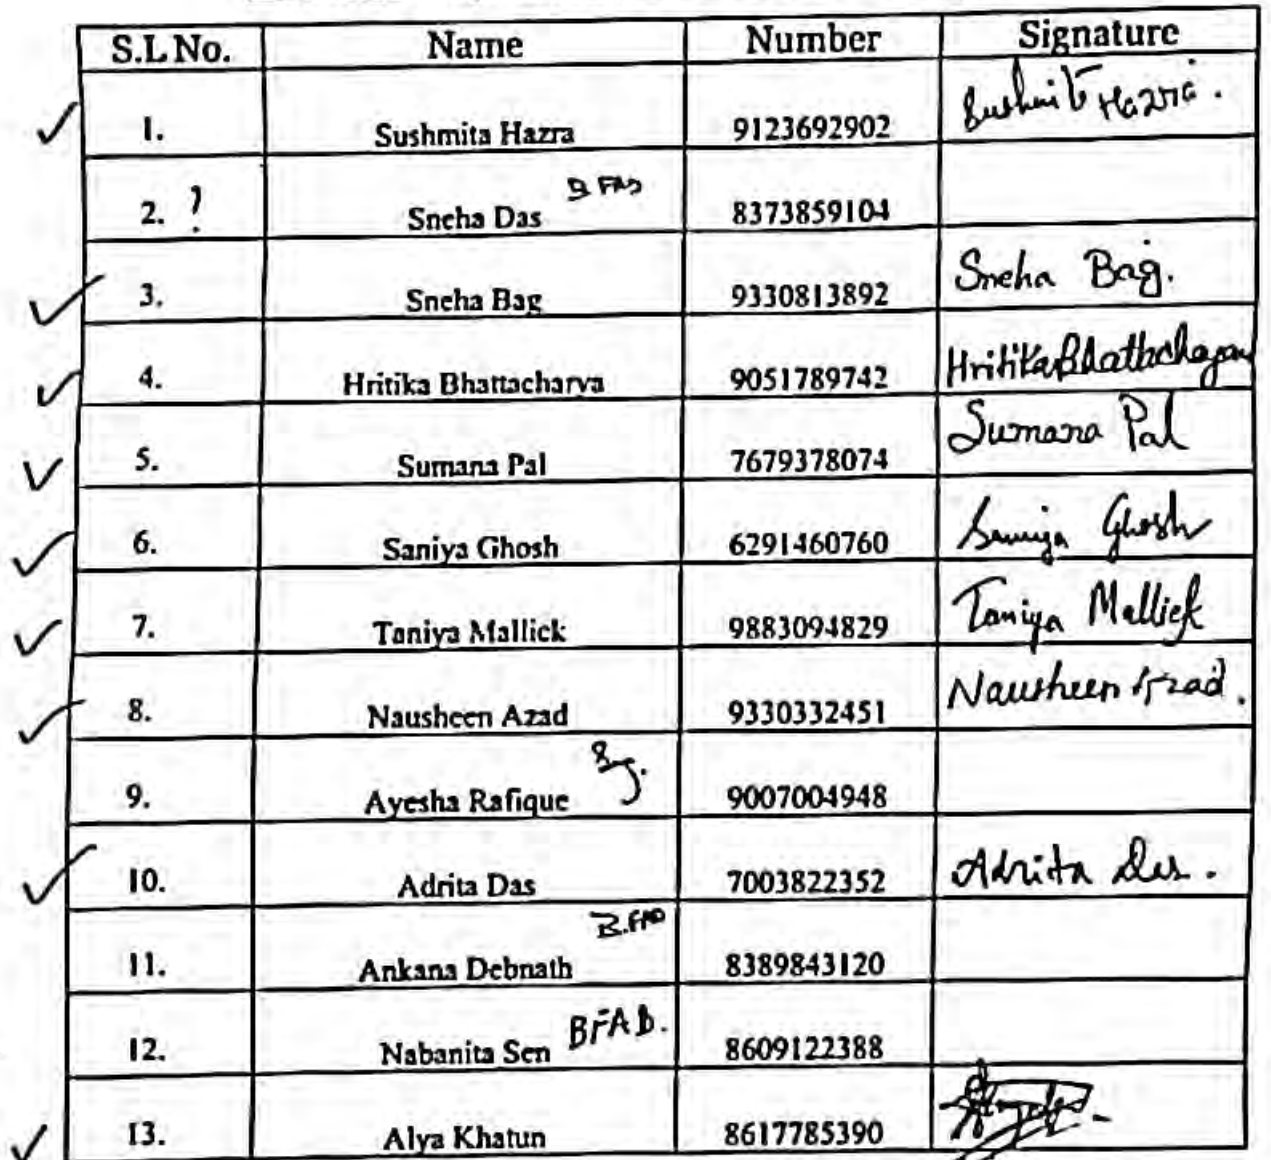 S.L No. Name Number Signature
1. Sushmita Hazra 9123692902 Sushmita Hazra.
2. ? Sneha Das B FAD 8373859104
3. Sneha Bag 9330813892 Sneha Bag.
4. Hritika Bhattacharya 9051789742 Hritika Bhattacharya
5. Sumana Pal 7679378074 Sumana Pal
6. Saniya Ghosh 6291460760 Saniya Ghosh
7. Taniya Mallick 9883094829 Taniya Mallick
8. Nausheen Azad 9330332451 Nausheen Azad.
9. Ayesha Rafique 9007004948
10. Adrita Das 7003822352 Adrita Das.
11. Ankana Debnath B.FAD 8389843120
12. Nabanita Sen BFAD. 8609122388
13. Alya Khatun 8617785390